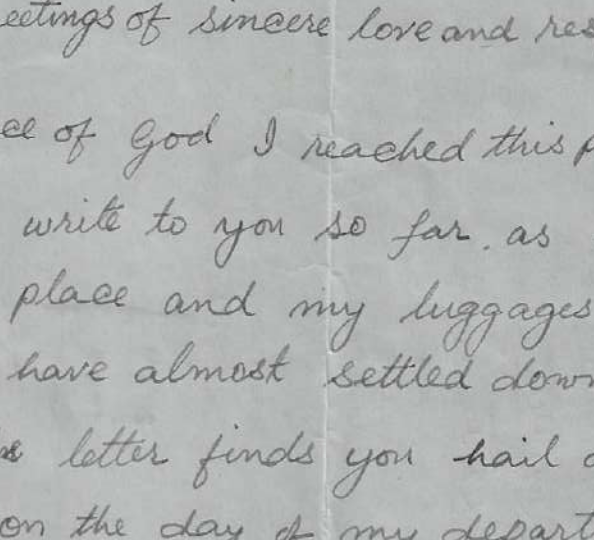 eetings of sincere love and res
ce of God I reached this p
write to you so far. as
place and my luggages
have almost settled down
letter finds you hail
on the day of my depart